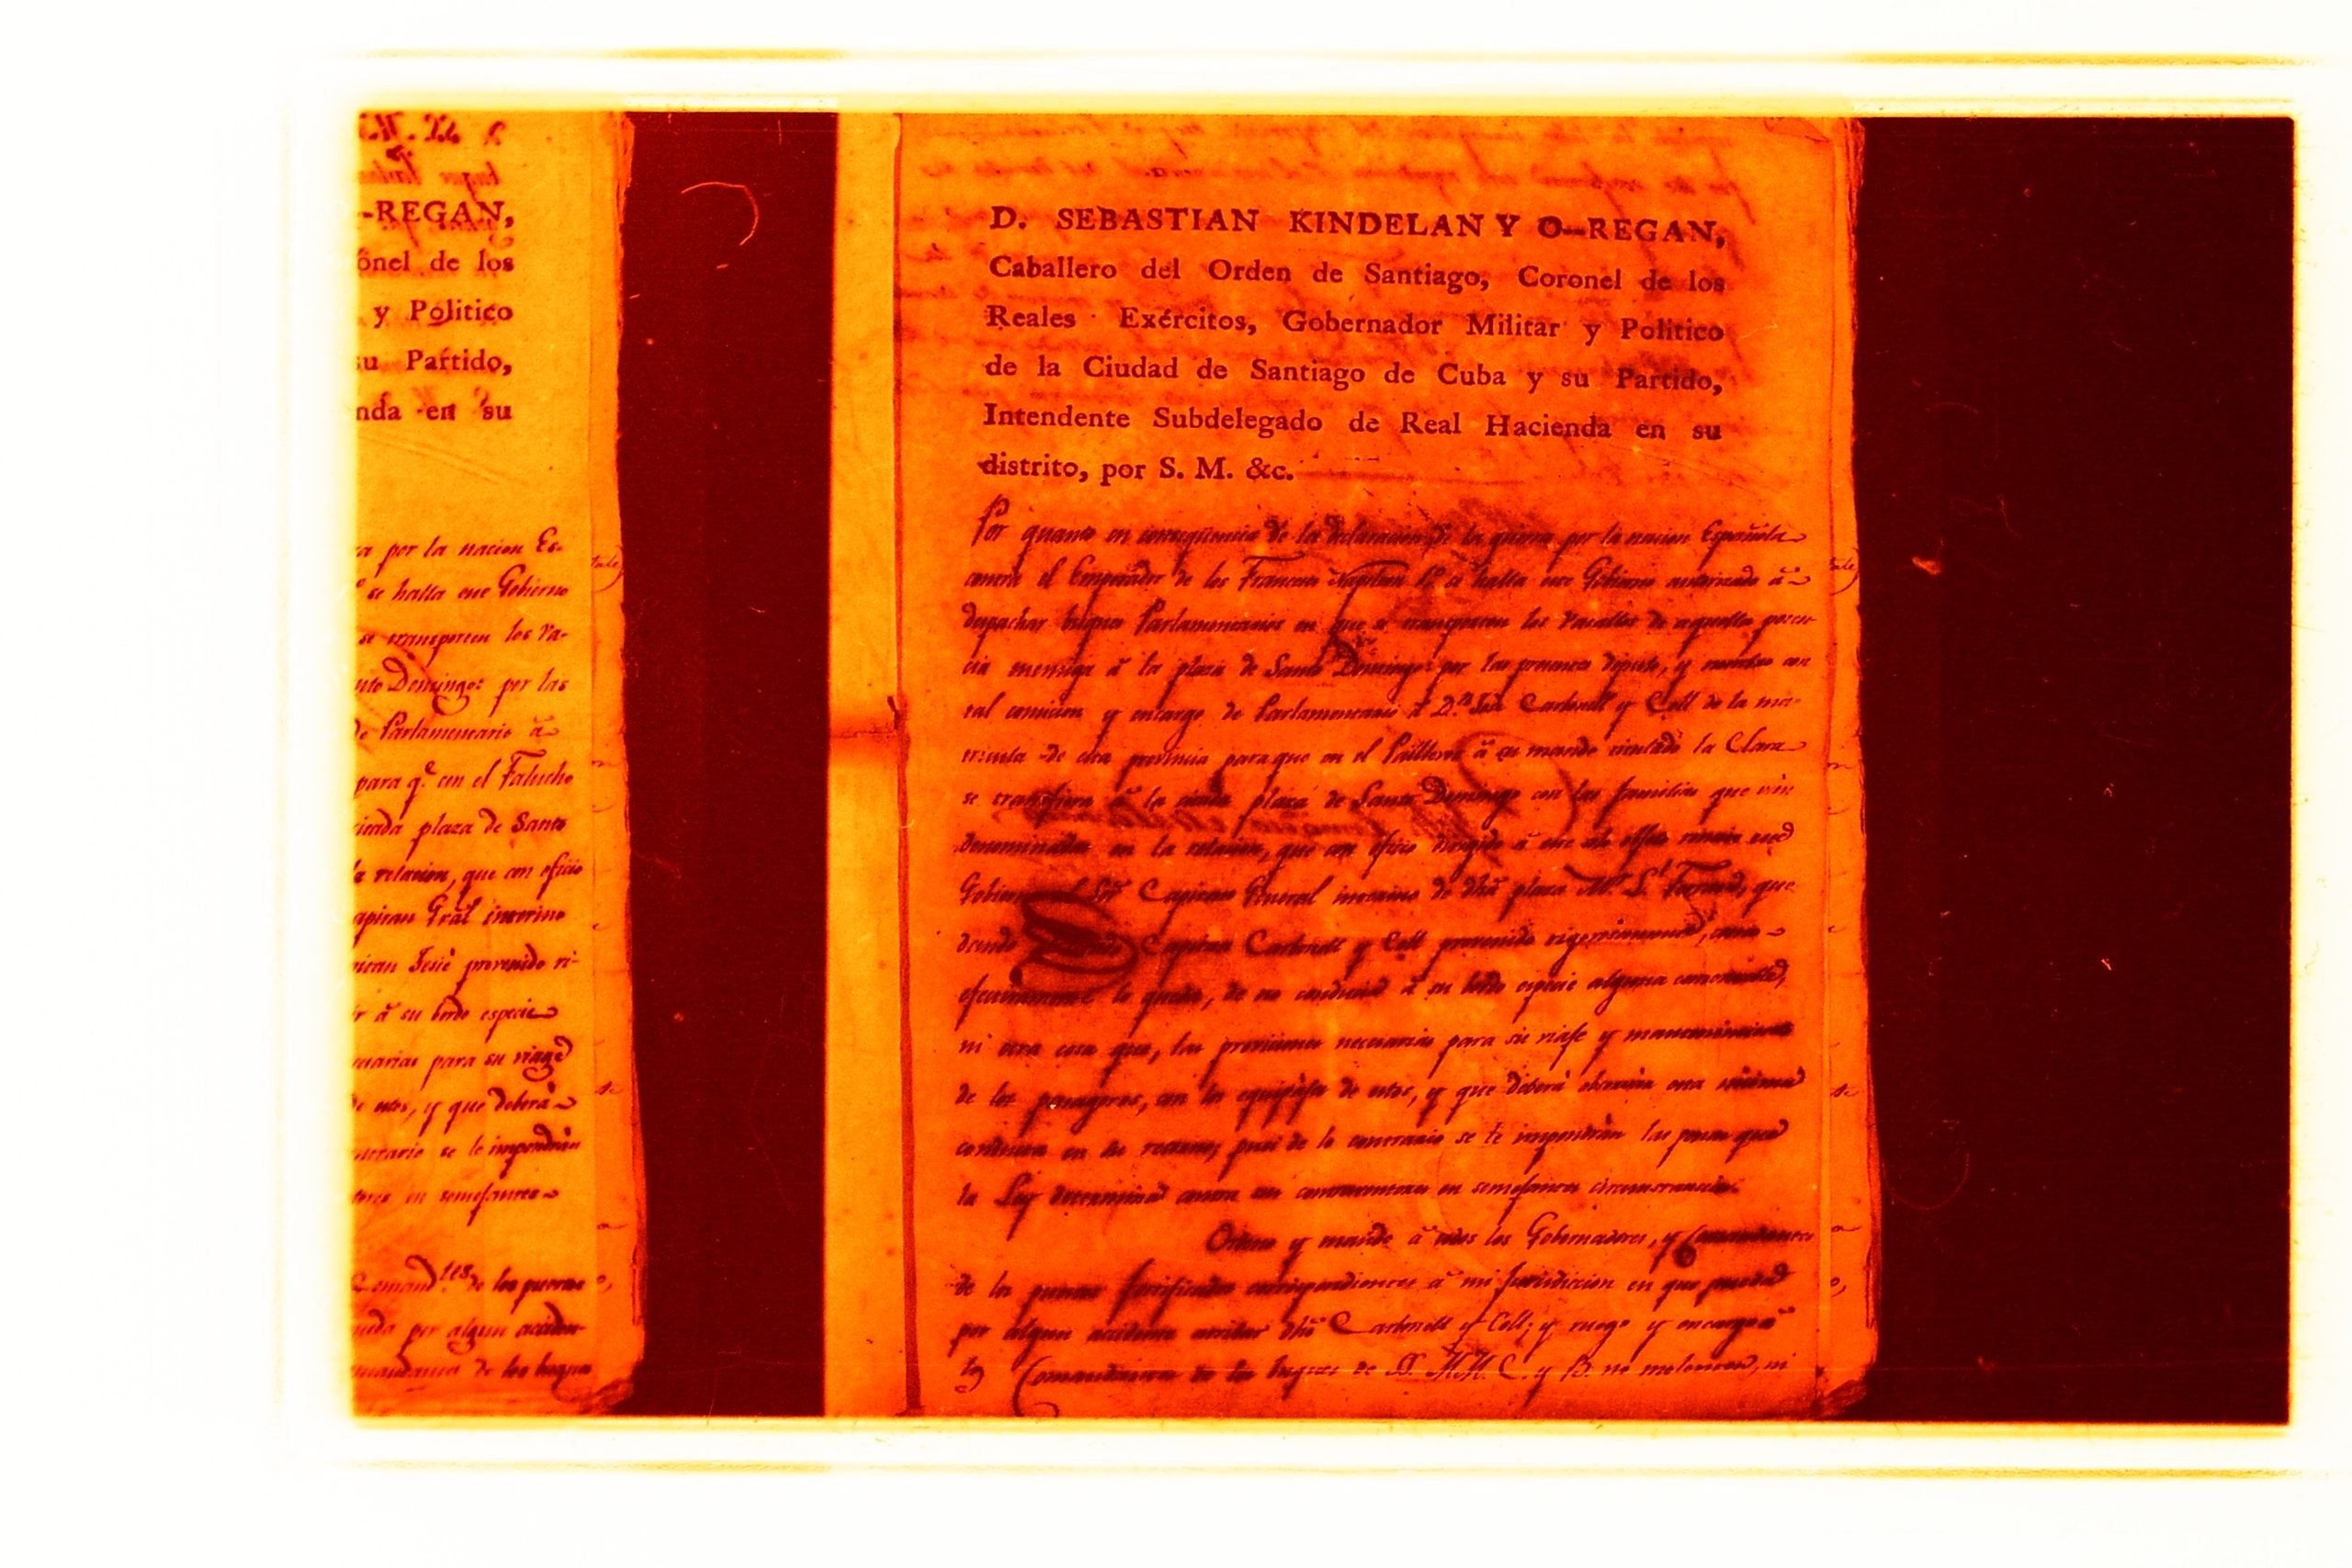 -REGAN,
onel de los
y Politico
su Partido,
nda en su
ra por la nacion Es-
se halla este Gobierno
se transporten los va-
nto Domingo: por las
de Parlamentario à
para q.e con el Falucho
citada plaza de Santo
la relacion, que con oficio
apitan Gral interino
pitan José prevenido ri-
ir à su bordo especie
cesarias para su viage
de estos, y que deberà
ntrario se le impondràn
tores en semejantes
Comand.tes de los puertos
nida por algun acciden-
mandantes de los buques
D. SEBASTIAN KINDELAN Y O-REGAN,
Caballero del Orden de Santiago, Coronel de los
Reales Exércitos, Gobernador Militar y Politico
de la Ciudad de Santiago de Cuba y su Partido,
Intendente Subdelegado de Real Hacienda en su
distrito, por S. M. &c.
Por quanto en conseqüencia de la declaracion de la guerra por la nacion Española
contra el Emperador de los Franceses Napoleon 1.º se halla este Gobierno autorizado à
despachar buques Parlamentarios en que se transporten los vasallos de aquella poten-
cia enemiga à la plaza de Santo Domingo: por las presentes diputo, y nombro con
tal comision y encargo de Parlamentario à D.n José Carbonell y Coll de la ma-
tricula de esta provincia para que en el Pailebot à su mando titulado la Clara
se transfiera à la citada plaza de Santo Domingo con las familias que van
denominadas en la relacion, que con oficio dirigido à este solo efecto remite este
Gobierno al Sor Capitan General interino de dha plaza Mr. L. Ferrand, que
dando Capitan Carbonell y Coll prevenido rigorosamente, como
efectivamente lo queda, de no conducir à su bordo especie alguna comerciable,
ni otra cosa que, las provisiones necesarias para su viaje y mantenimiento
de los pasageros, con los equipajes de estos, y que deberà observar esta misma
conducta en su retorno; pues de lo contrario se le impondràn las penas que
la Ley determina contra sus contraventores en semejantes circunstancias.
Ordeno y mando à todos los Gobernadores, y Comandantes
de los puertos fortificados correspondientes à mi Jurisdicion en que pueda
por algun accidente arribar dho Carbonell y Coll; y ruego y encargo à
los Comandantes de los buques de SS. MM. C. y B. no molesten, ni